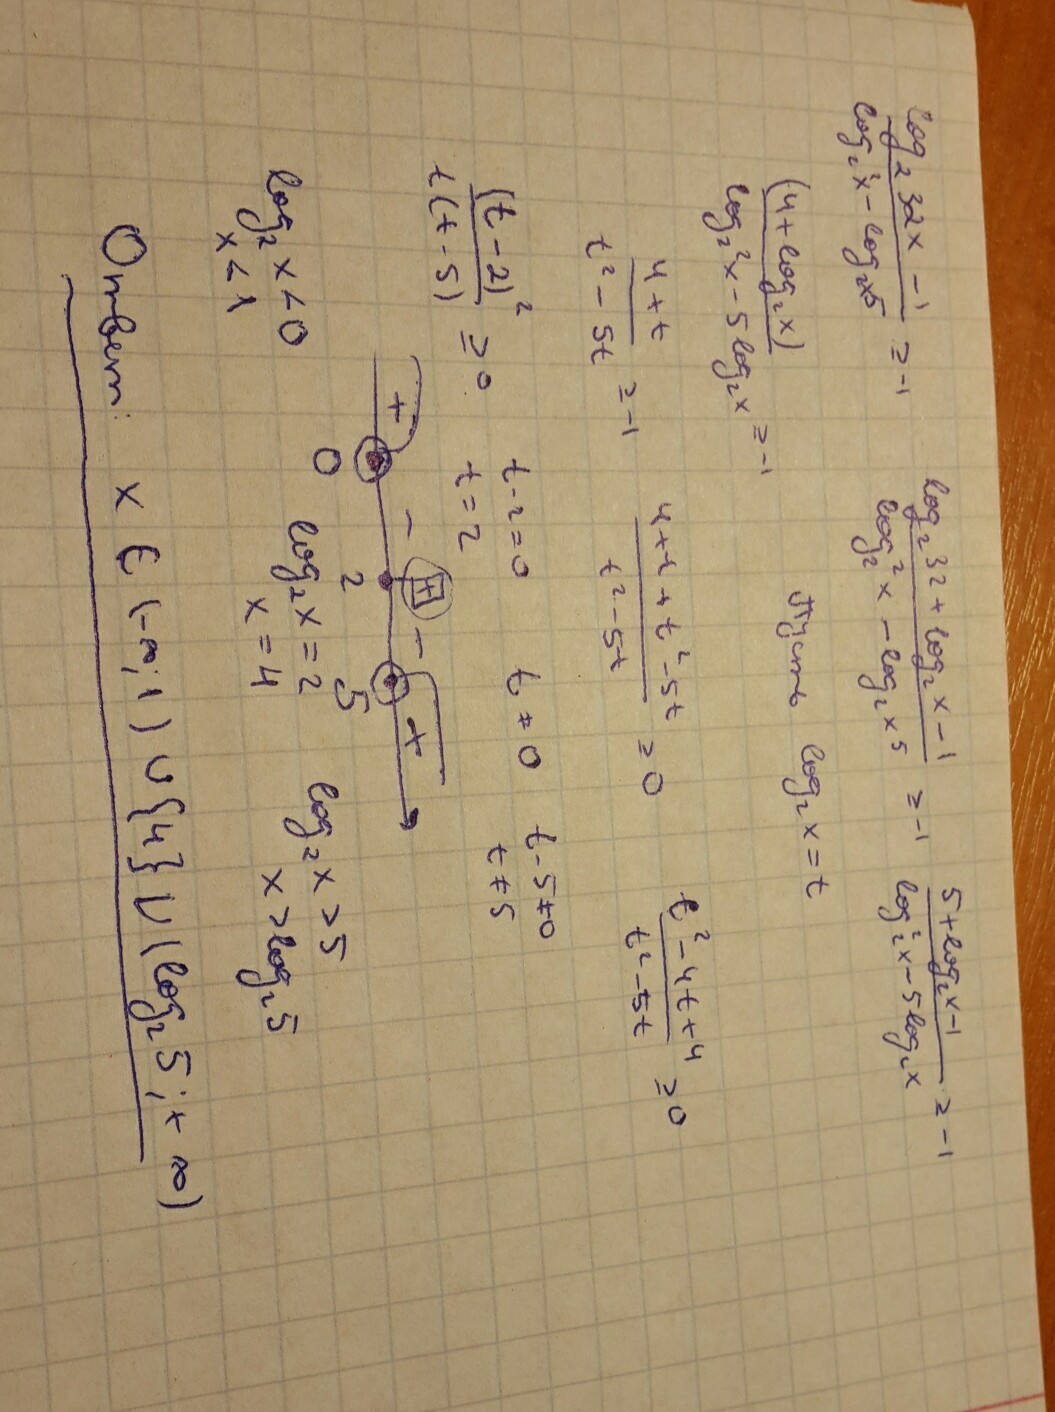 log₂32x - 1 / log₂²x - log₂x⁵ ≥ -1
log₂32 + log₂x - 1 / log₂²x - log₂x⁵ ≥ -1
5 + log₂x - 1 / log₂²x - 5log₂x ≥ -1
(4 + log₂x) / log₂²x - 5log₂x ≥ -1
Пусть log₂x = t
4 + t / t² - 5t ≥ -1
4 + t + t² - 5t / t² - 5t ≥ 0
t² - 4t + 4 / t² - 5t ≥ 0
(t - 2)² / t(t - 5) ≥ 0
t - 2 = 0
t = 2
t ≠ 0
t - 5 ≠ 0
t ≠ 5
+ - + - +
0 2 5
log₂x < 0
x < 1
log₂x = 2
x = 4
log₂x > 5
x > log₂5
Ответ: x ∈ (-∞; 1) ∪ {4} ∪ (log₂5; +∞)